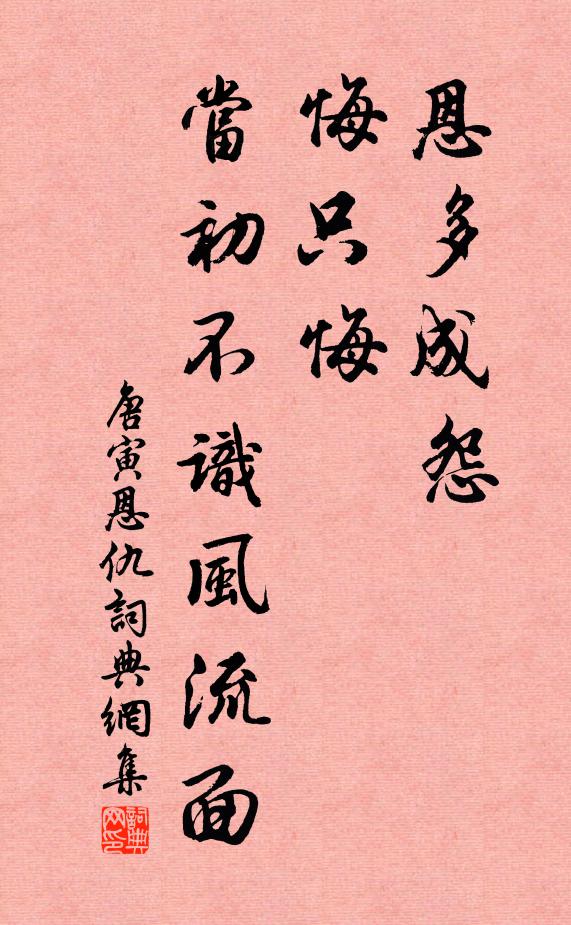 恩多成怨
悔只悔
當初不識風流面
唐寅恩仇詞典網集
詞典網印